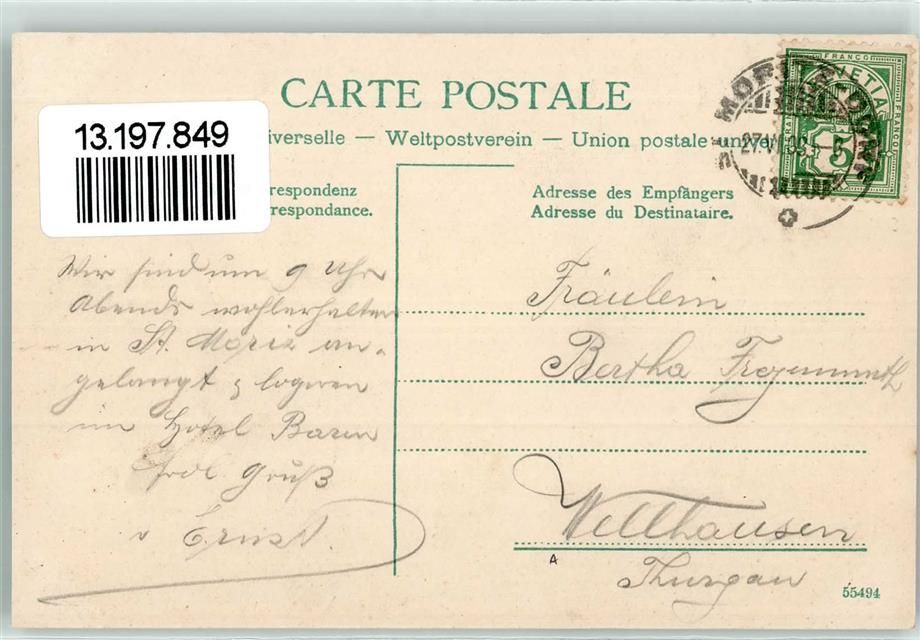 CARTE POSTALE
13.197.849
iverselle — Weltpostverein — Union postale univer
respondenz
respondance.
Adresse des Empfängers
Adresse du Destinataire.
FRANCO
HELVETIA
5
27.VI
Wir sind um 9 Uhr
Abends wohlerhalten
in St. Moriz an-
gelangt & logieren
im Hotel Baren
Frdl. Gruß
v Ernst.
Fräulein
Bertha Fregenmuth
Wellhausen
Thurgau
A
55494